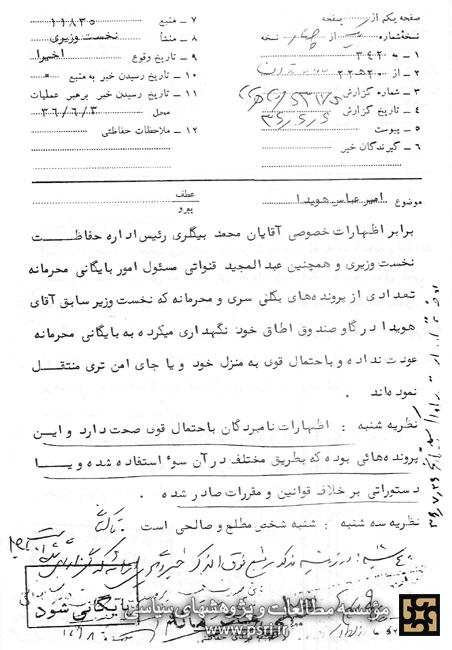 صفحه یکم از صفحه
نسخه شماره از چهار نسخه
۱ - به ۳۴۲۰
۲ - از ۲۲هـ۲۰
۳ - شماره گزارش
۴ - تاریخ گزارش ۳۶/۶/۶
۵ - پیوست
۶ - گیرندگان خبر
۷ - منبع ۱۱۸۳۵
۸ - منشأ نخست وزیری
۹ - تاریخ وقوع اخیرا
۱۰ - تاریخ رسیدن خبر به منبع "
۱۱ - تاریخ رسیدن خبر برهبر عملیات
محل ۳۶/۶/۳
۱۲ - ملاحظات حفاظتی
موضوع امیر عباس هویدا
عطف
پیرو
برابر اظهارات خصوصی آقایان محمد بیگلری رئیس اداره حفاظت
نخست وزیری و همچنین عبدالمجید قنواتی مسئول امور بایگانی محرمانه
تعدادی از پرونده های بکلی سری و محرمانه که نخست وزیر سابق آقای
هویدا در گاو صندوق اطاق خود نگهداری میکرده به بایگانی محرمانه
عودت نداده و باحتمال قوی به منزل خود و یا جای امن تری منتقل
نموده اند .
نظریه شنبه : اظهارات نامبردگان باحتمال قوی صحت دارد و این
پرونده هائی بوده که بطریق مختلف در آن سوء استفاده شده و یا
دستوراتی بر خلاف قوانین و مقررات صادر شده .
نظریه سه شنبه : شنبه شخص مطلع و صالحی است .
بایگانی شود
موسسه مطالعات و پژوهشهای سیاسی
www.psri.ir